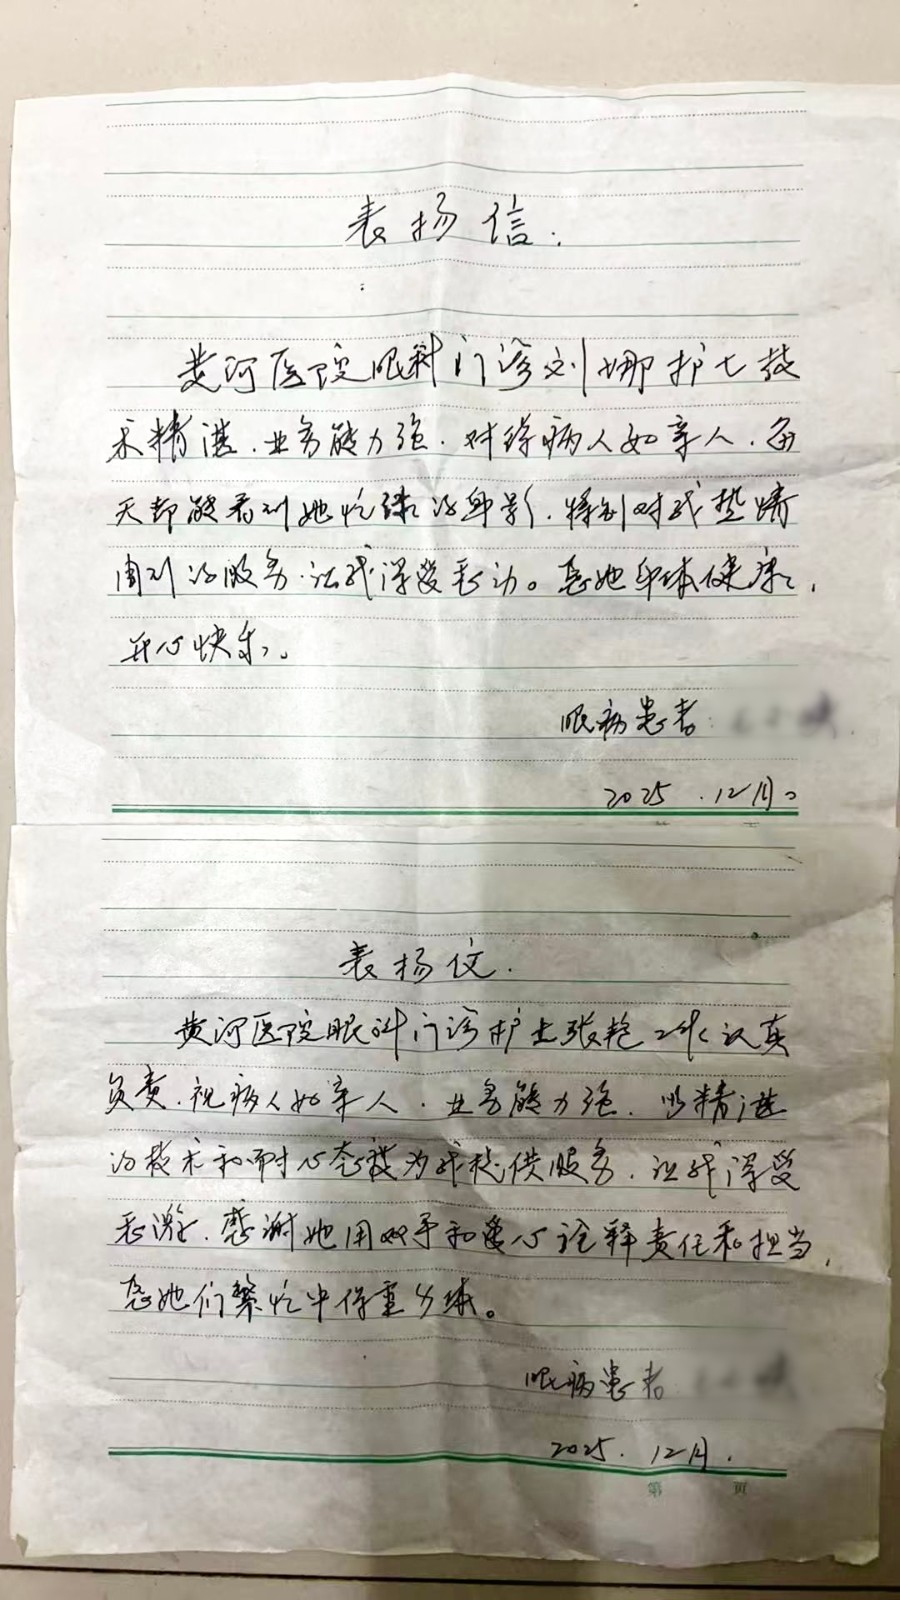 表扬信：
黄河医院眼科门诊刘娜护士技
术精湛、业务能力强、对待病人如亲人、每
天都能看到她忙碌的身影、特别对我热情
周到的服务、让我深受感动。愿她身体健康、
开心快乐。
眼病患者：
2025.12月。
表扬信.
黄河医院眼科门诊护士张艳工作认真
负责、视病人如亲人、业务能力强、以精湛
的技术和耐心态度为我提供服务、让我深受
感激、感谢她用双手和爱心诠释责任和担当，
愿她们繁忙中保重身体。
眼病患者
2025.12月.
第 页